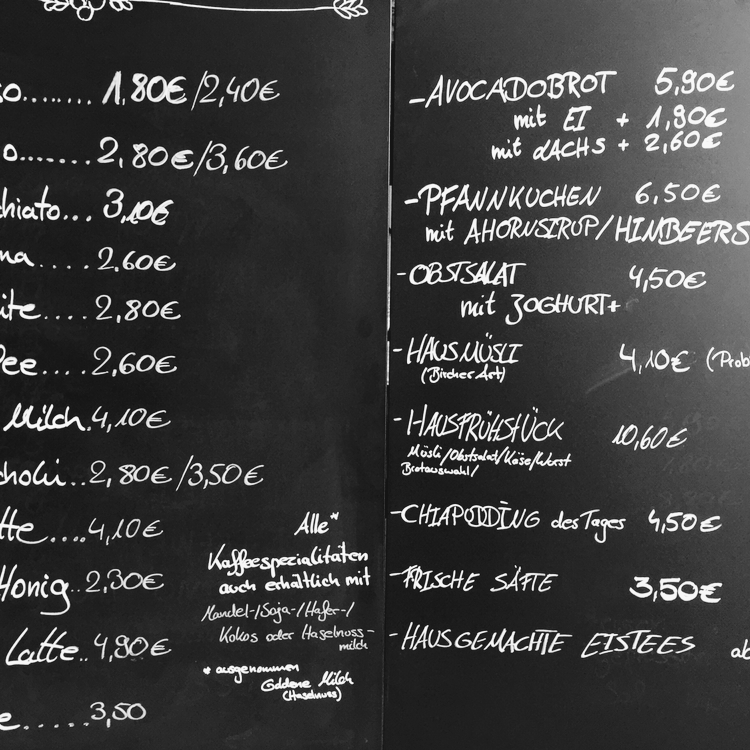 so........ 1,80€/2,40€
o........ 2,80€/3,60€
chiato... 3,10€
na..... 2,60€
ite.... 2,80€
fee.... 2,60€
Milch. 4,10€
choki.. 2,80€/3,50€
tte.... 4,10€
Honig.. 2,30€
Latte.. 4,90€
e...... 3,50
Alle*
Kaffeespezialitäten
auch erhältlich mit
Mandel-/Soja-/Hafer-/
Kokos oder Haselnuss-
milch
* ausgenommen
Goldene Milch
(Haselnuss)
-AVOCADOBROT 5,90€
mit EI + 1,90€
mit LACHS + 2,60€
-PFANNKUCHEN 6,50€
mit AHORNSIRUP/HIMBEERS
-OBSTSALAT 4,50€
mit JOGHURT+
-HAUSMÜSLI 4,10€ (Prob
(Bircher Art)
-HAUSFRÜHSTÜCK 10,60€
Müsli/Obstsalat/Käse/Wurst
Brotauswahl/
-CHIAPUDDING des Tages 4,50€
-FRISCHE SÄFTE 3,50€
-HAUSGEMACHTE EISTEES ab